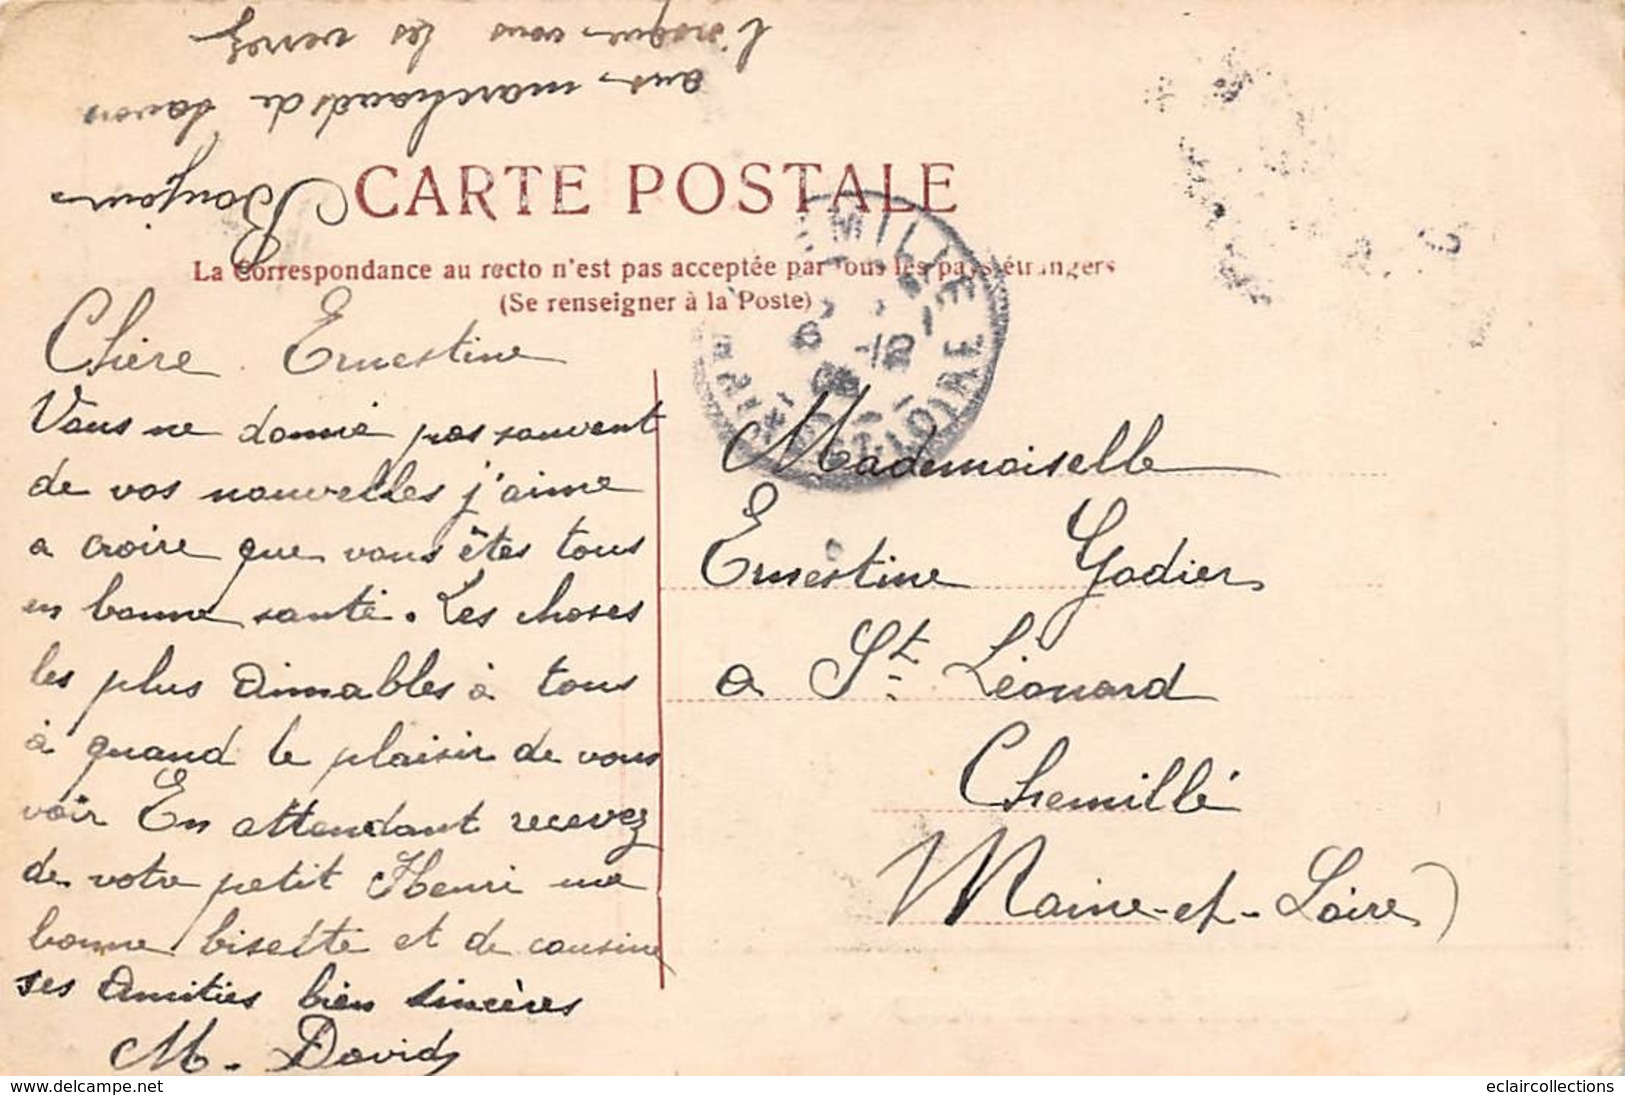 Bonjour
aux marchands de savon
l'orsque vous les verrez
CARTE POSTALE
La Correspondance au recto n'est pas acceptée par tous les pays étrangers
(Se renseigner à la Poste)
Chère Ernestine
Vous ne donné pas souvent
de vos nouvelles j'aime
a croire que vous êtes tous
en bonne santé. Les choses
les plus aimables à tous
à quand le plaisir de vous
voir En attendant recevez
de votre petit Henri une
bonne bisette et de cousine
ses amitiés bien sincères
M. David
Mademoiselle
Ernestine Godier
a St. Léonard
Chemillé
Maine-et-Loire
EMILLE
LOIRE
eclaircollections